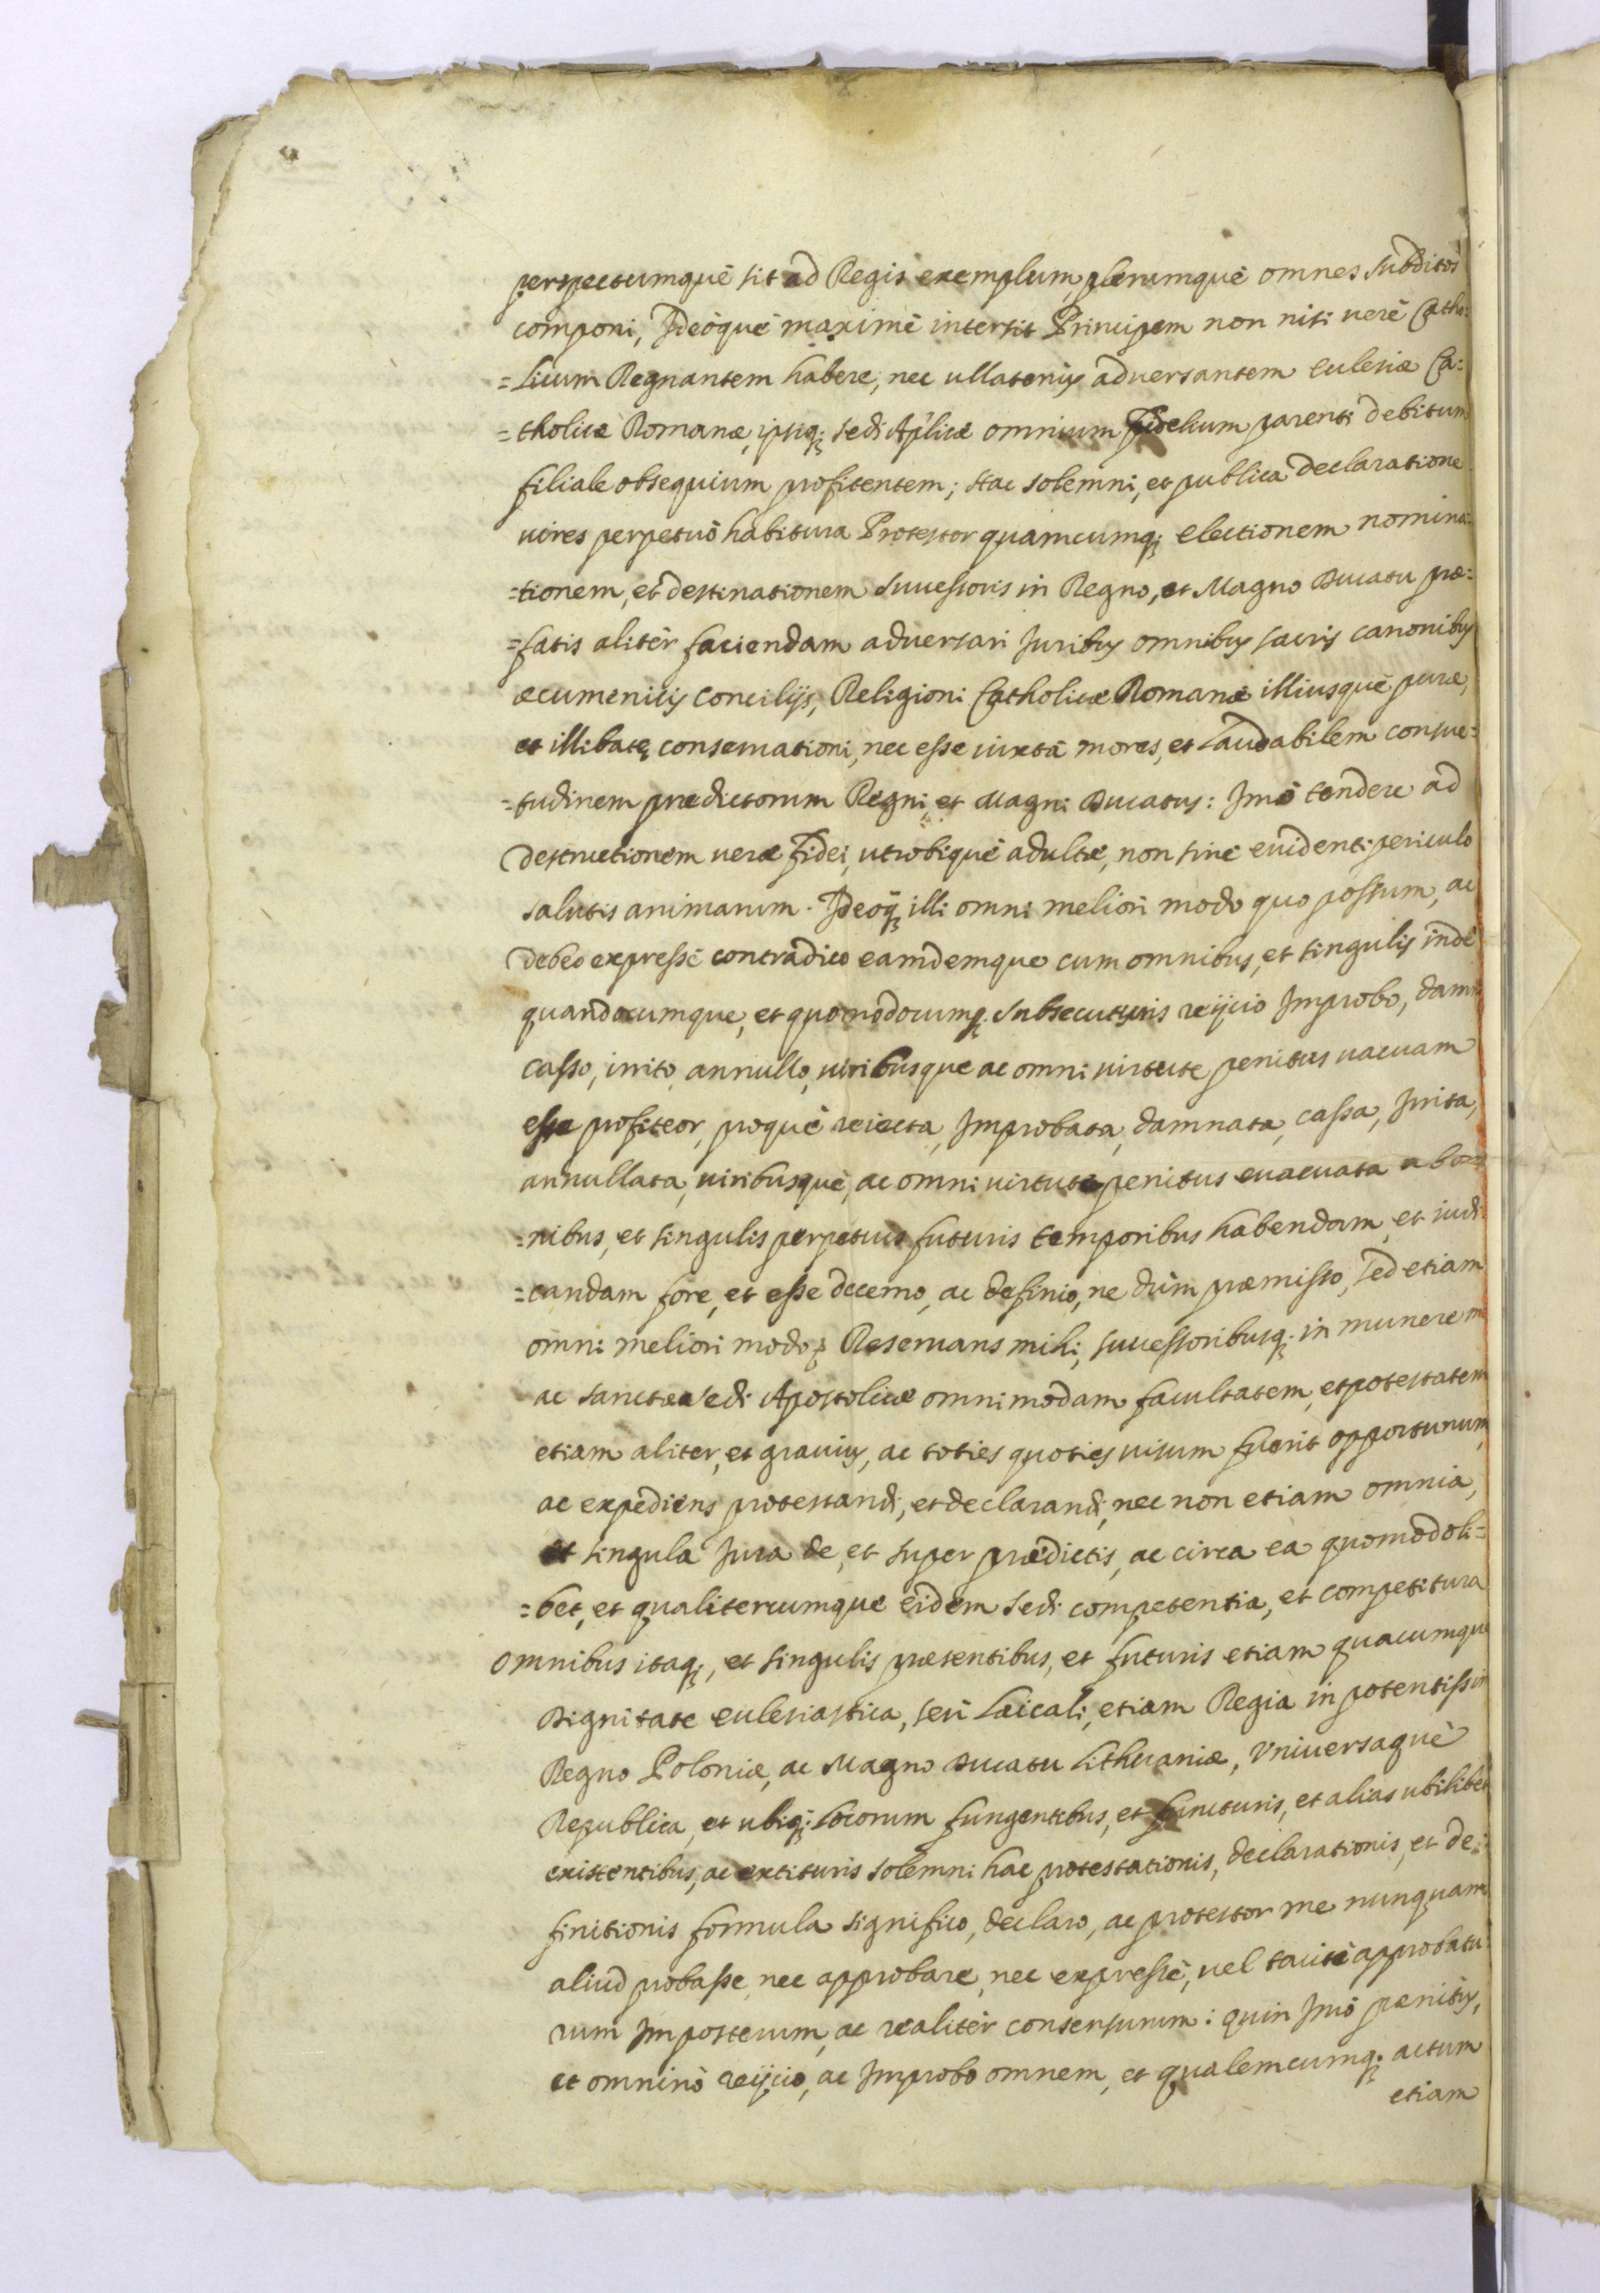 perspectumquè sit ad Regis exemplum, plerumquè omnes subditos
componi, Ideòquè maximè intersit Principem non nisi verè Catho=
=licum Regnantem habere, nec ullatenus adversantem Eclesiæ Ca=
=tholicæ Romanæ, ipsiq; sedi Aplicæ omnium fidelium parenti debitum
filiale obsequium profitentem; Hac solemni, et publica declaratione
vires perpetuò habitura Protestor quamcumq; electionem nomina=
=tionem, et destinationem successoris in Regno, et Magno Ducatu præ=
=fatis alitèr faciendam adversari Juribus omnibus sacris canonibus
æcumenicis concilijs, Religioni Catholicæ Romanæ illiusquè puræ,
et illibatę conservationi, nec esse iuxtà mores, et laudabilem consue=
=tudinem prædictorum Regni, et Magni Ducatus: Imò tendere ad
destructionem veræ fidei, utrobiquè adultæ, non sinè evidenti periculo
salutis animarum. Ideoq; illi omni meliori modo quo possum, ac
debeo expressè contradico eamdemque cum omnibus, et singulis indè
quandocumque, et quomodocumq; subsecuturis reijcio Improbo, damno
casso, irrito, annullo, viribusque ac omni virtute penitus vacuam
esse profiteor, proquè reiecta, Improbata, damnata, cassa, Irrita,
annullata, viribusquè, ac omni virtute penitus evacuata ab om=
=nibus, et singulis perpetuis futuris temporibus habendam, et iudi=
=candam fore, et esse decerno, ac definio, ne dùm præmisso, sed etiam
omni meliori modo; Reservans mihi, successoribusq; in munere meo
ac sanctæ sedi Apostolicæ omnimodam facultatem, et potestatem
etiam aliter, et gravius, ac toties quoties visum fuerit opportunum,
ac expediens protestandi, et declarandi, nec non etiam omnia,
et singula Jura de, et super prædictis, ac circa ea quomodoli=
=bet, et qualitercumque eidem sedi competentia, et competitura
Omnibus itaq;, et singulis præsentibus, et futuris etiam quacumque
Dignitate eclesiastica, seu laicali, etiam Regia in potentissimo
Regno Poloniæ, ac Magno Ducatu Lithuaniæ, Universaquè
Republica, et ubiq; locorum fungentibus, et functuris, et alias ubilibet
existentibus, ac extituris solemni hac protestationis, declarationis, et de=
finitionis formula significo, declaro, ac protestor me nunquam
aliud probasse, nec approbare, nec expressè, vel tacitè approbatu=
rum Imposterum, ac realitèr consensurum: quin Imò penitus,
et omninò reijcio, ac Improbo omnem, et qualemcumq; actum
etiam